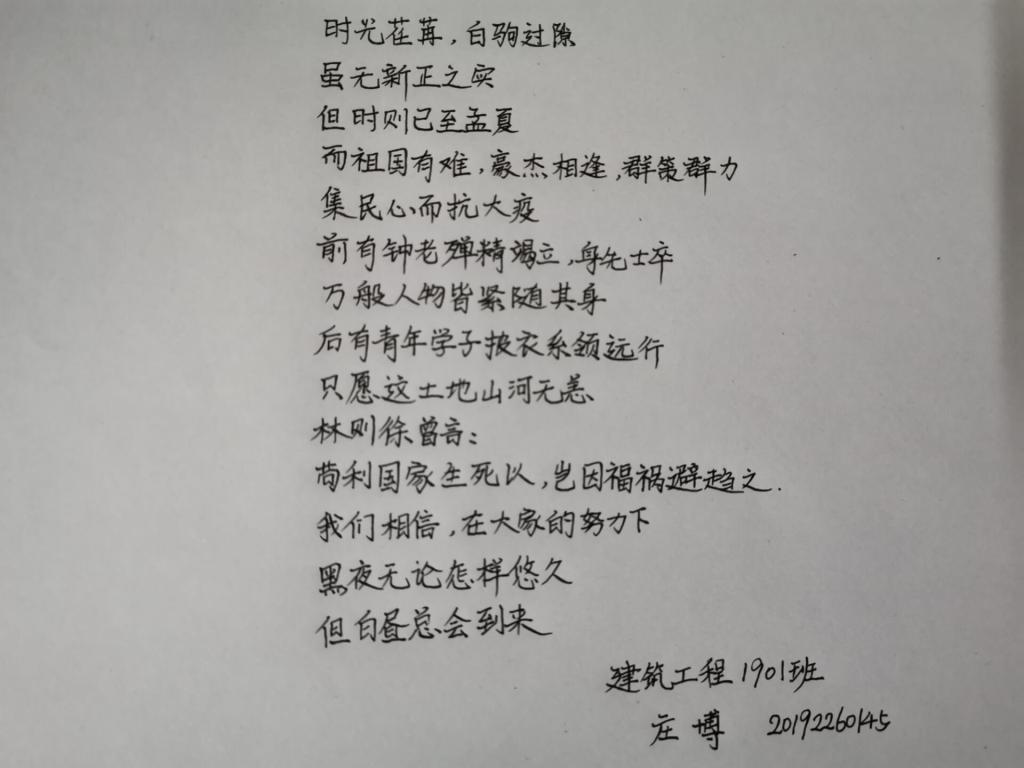 时光荏苒,白驹过隙
虽无新正之实
但时则已至孟夏
而祖国有难,豪杰相逢,群策群力
集民心而抗大疫
前有钟老殚精竭立,身先士卒
万般人物皆紧随其身
后有青年学子披衣系领远行
只愿这土地山河无恙
林则徐曾言:
苟利国家生死以,岂因福祸避趋之.
我们相信,在大家的努力下
黑夜无论怎样悠久
但白昼总会到来
建筑工程1901班
庄博 20192260145